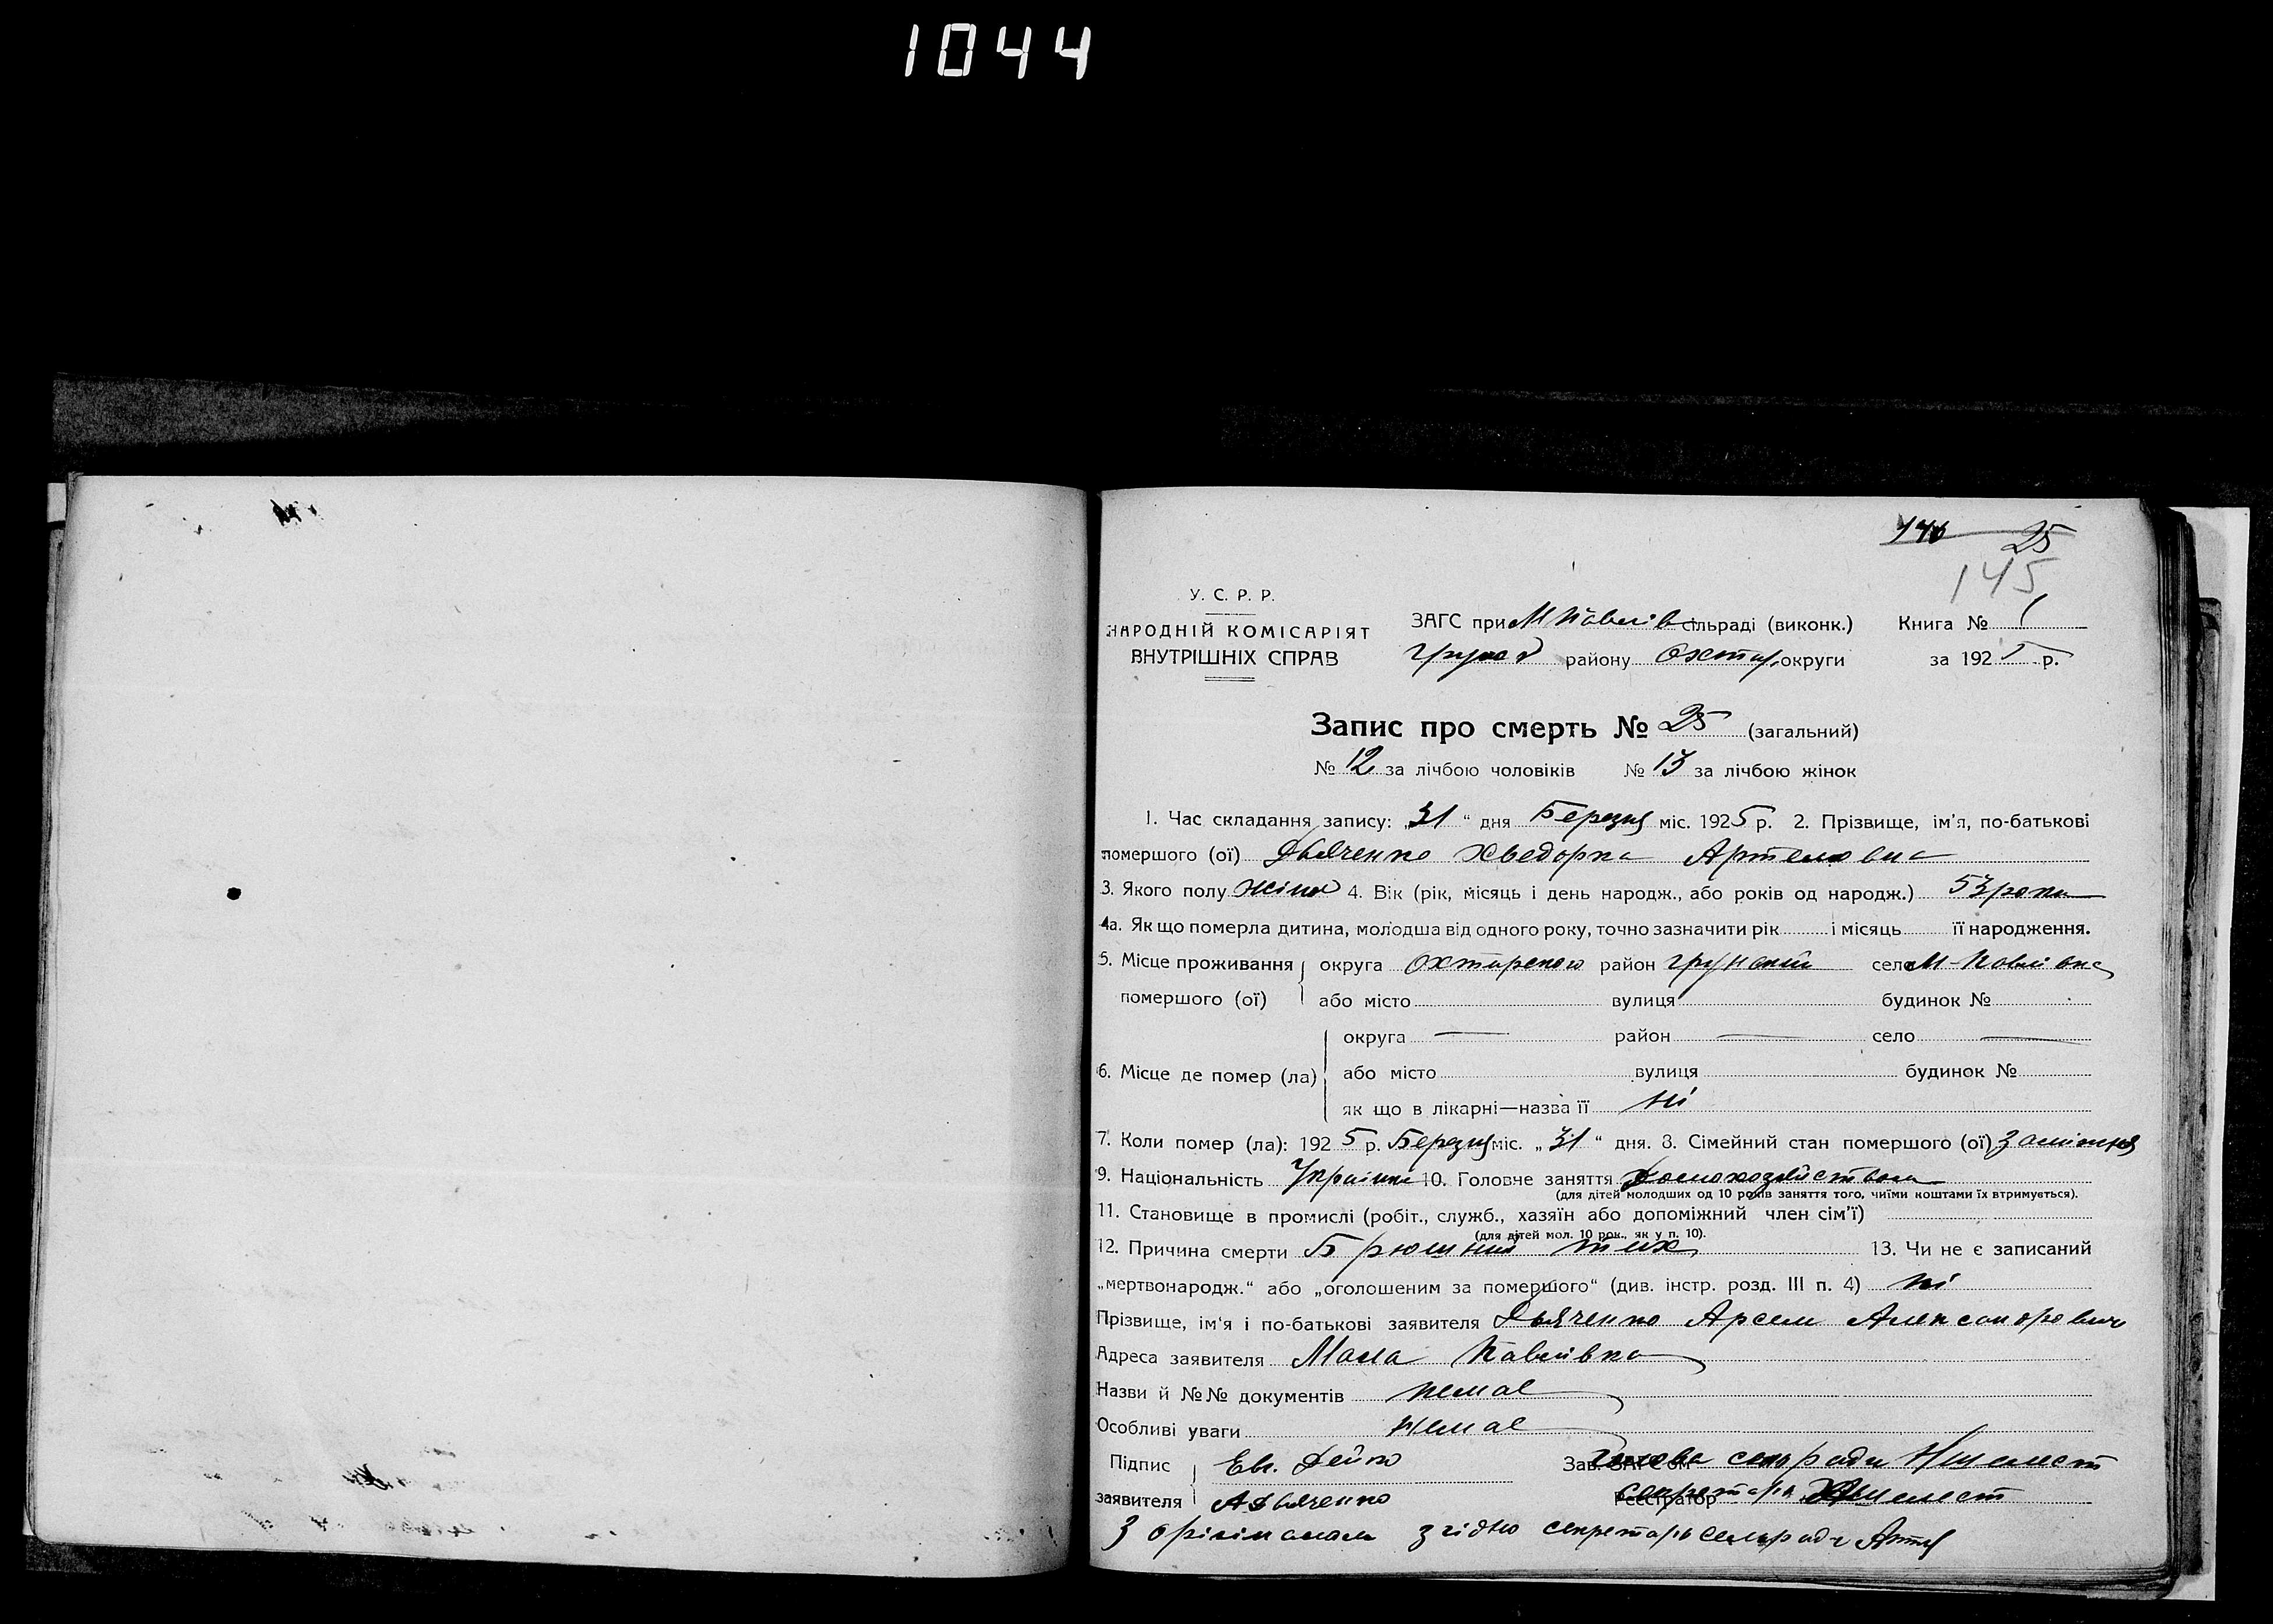 1044
146 25
145
У. С. Р. Р.
НАРОДНІЙ КОМІСАРІЯТ
ВНУТРІШНІХ СПРАВ
ЗАГС при М Павлів сільраді (виконк.) Книга № 1
Грунсь району Охтир. округи за 1925 р.
Запис про смерть № 25 (загальний)
№ 12 за лічбою чоловіків № 13 за лічбою жінок
1. Час складання запису: „31“ дня Березня міс. 1925 р. 2. Прізвище, ім'я, по-батькові
помершого (ої) Дьяченко Хведорка Артемовна
3. Якого полу жіно 4. Вік (рік, місяць і день народж., або років од народж.) 53 роки
4а. Як що померла дитина, молодша від одного року, точно зазначити рік і місяць її народження.
5. Місце проживання округа Охтирского район Грунский село М-Павлівка
помершого (ої) або місто вулиця будинок №
округа — район — село —
6. Місце де помер (ла) або місто вулиця будинок №
як що в лікарні—назва її ні
7. Коли помер (ла): 1925 р. Березня міс. „31“ дня. 8. Сімейний стан помершого (ої) заміжня
9. Національність Українка 10. Головне заняття Домохозяйством
(для дітей молодших од 10 років заняття того, чиїми коштами їх втримується).
11. Становище в промислі (робіт., служб., хазяїн або допоміжний член сім'ї)
(для дітей мол. 10 рок., як у п. 10).
12. Причина смерти Брюшний тих 13. Чи не є записаний
„мертвонародж.“ або „оголошеним за помершого“ (див. інстр. розд. III п. 4) ні
Прізвище, ім'я і по-батькові заявителя Дьяченко Арсем Александревич
Адреса заявителя Мала Павлівка
Назви й №№ документів немає
Особливі уваги немає
Підпис Евг. Дейко Зав. ЗАГС'ом Голова сельради Н Шелест
заявителя А Дьяченко Реєстратор секретарь Шелест
З орігіналом згідно секретарь сельради